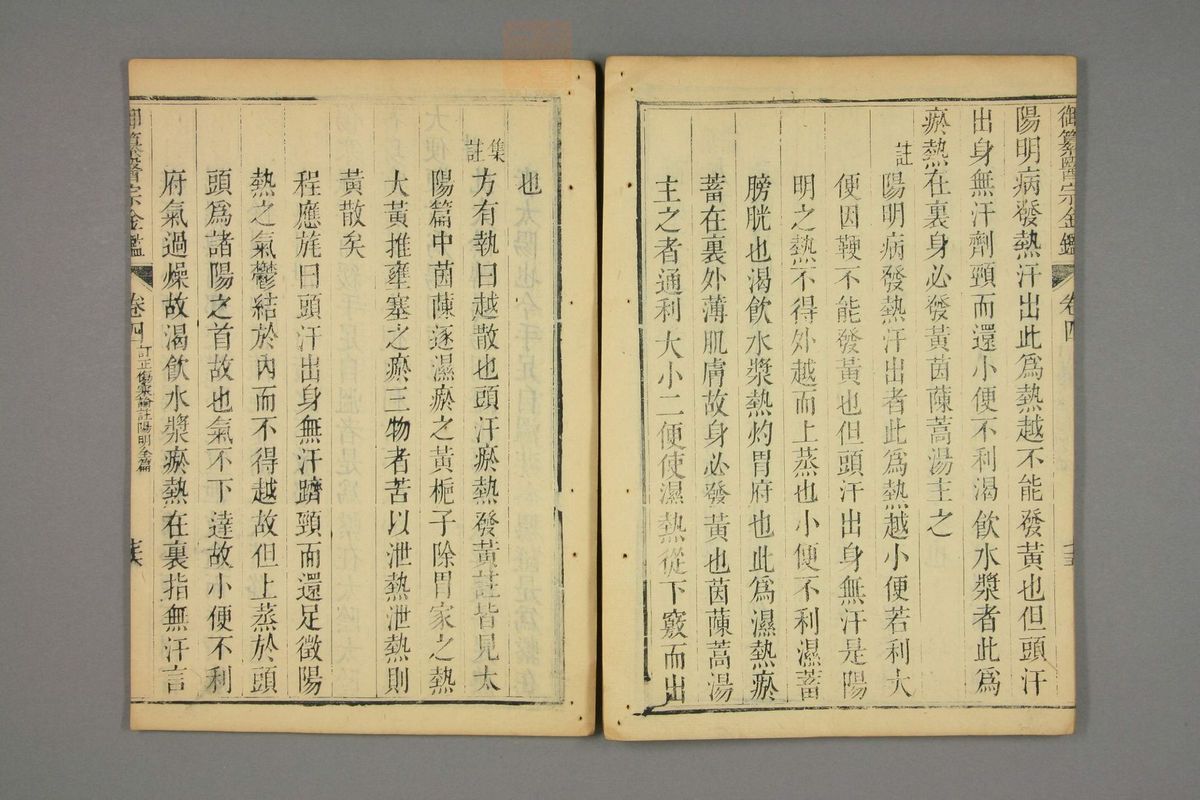 御纂醫宗金鑑 卷四
陽明病發熱汗出此爲熱越不能發黃也但頭汗
出身無汗劑頸而還小便不利渴飮水漿者此爲
瘀熱在裏身必發黃茵蔯蒿湯主之
註
陽明病發熱汗出者此爲熱越小便若利大
便因鞕不能發黃也但頭汗出身無汗是陽
明之熱不得外越而上蒸也小便不利濕蓄
膀胱也渴飮水漿熱灼胃府也此爲濕熱瘀
蓄在裏外薄肌膚故身必發黃也茵蔯蒿湯
主之者通利大小二便使濕熱從下竅而出
也
集註
方有執曰越散也頭汗瘀熱發黃註皆見太
陽篇中茵蔯逐濕瘀之黃梔子除胃家之熱
大黃推壅塞之瘀三物者苦以泄熱泄熱則
黃散矣
程應旄曰頭汗出身無汗躋頸而還足徵陽
熱之氣鬱結於內而不得越故但上蒸於頭
頭爲諸陽之首故也氣不下達故小便不利
府氣過燥故渴飮水漿瘀熱在裏指無汗言
御纂醫宗金鑑 卷四 訂正傷寒論註陽明全篇